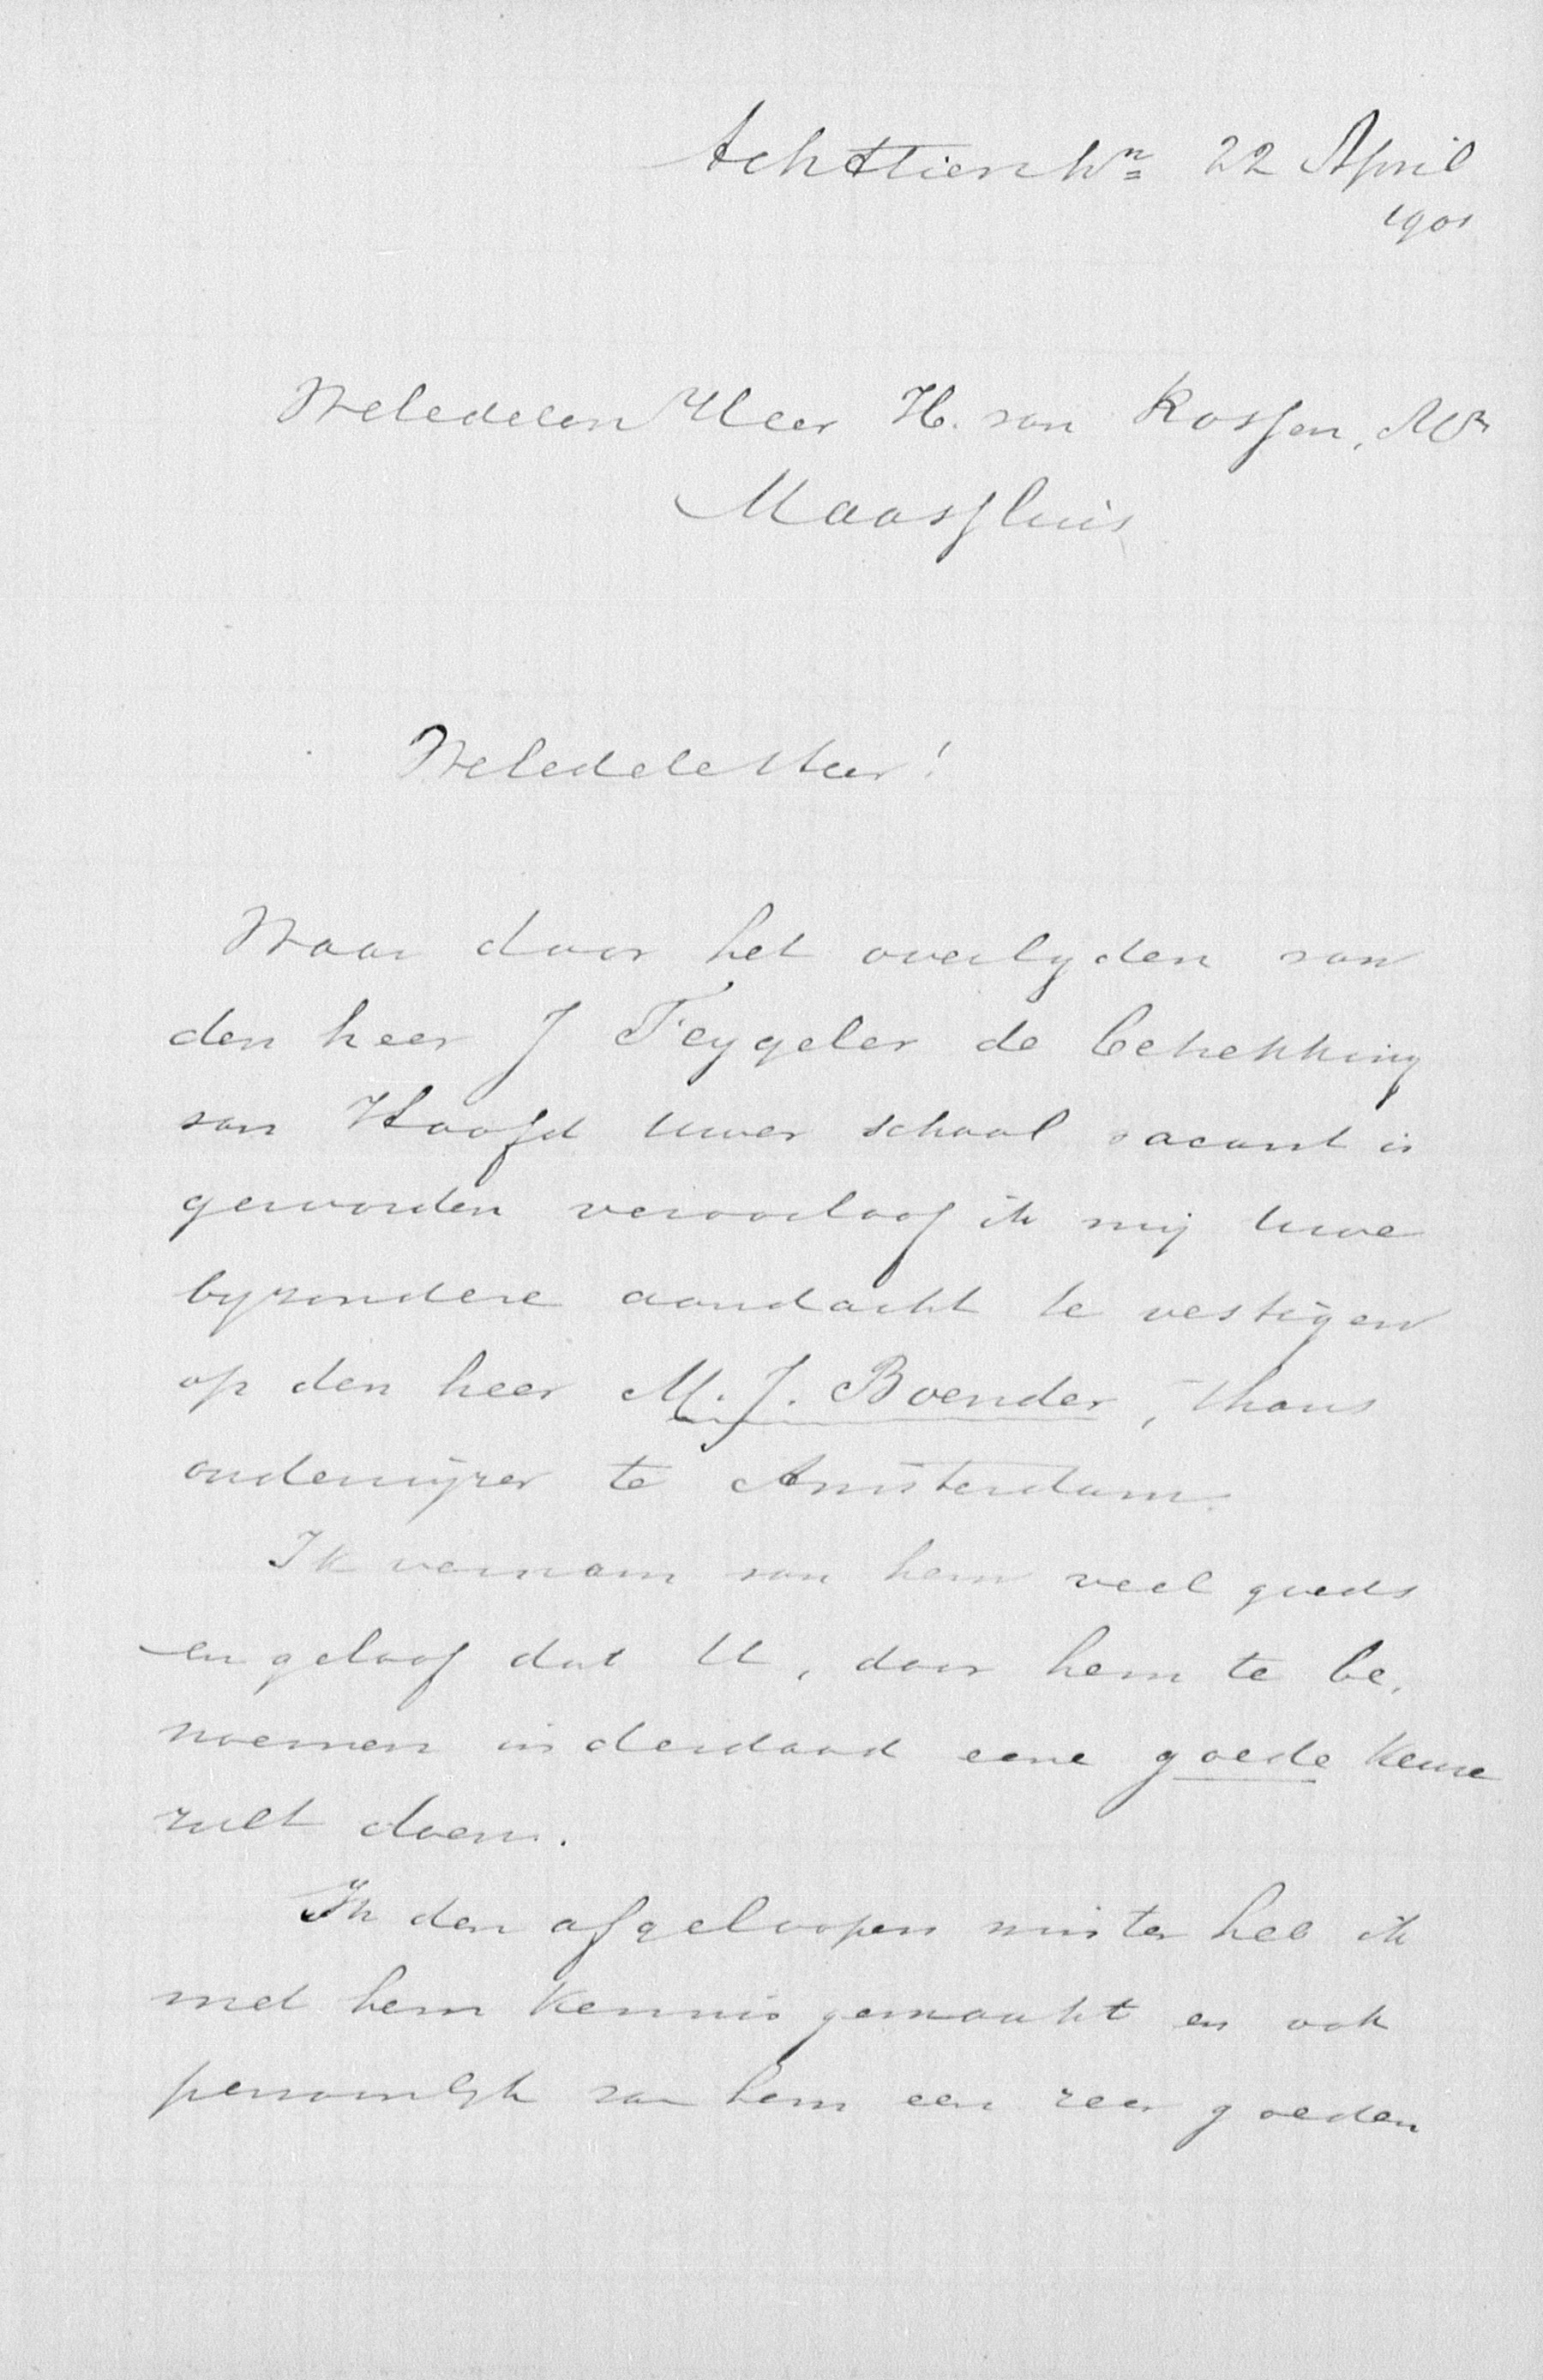 Achttienhn 22 April
1901
Weledelen Heer H. van Rossen, Mr
Maassluis
Weledele Heer!
Waar door het overlyden van
den heer J Feygeler de betrekking
van Hoofd uwer school vacant is
geworden veroorloof ik mij Uwe
byzondere aandacht te vestigen
op den heer M. J. Boender, thans
onderwijzer te Amsterdam.
Ik vernam van hem veel goeds
en geloof dat U, door hem te be,
noemen inderdaad eene goede keuze
zult doen.
In den afgeloopen winter heb ik
met hem kennis gemaakt en ook
persoonlyk van hem een zeer goeden